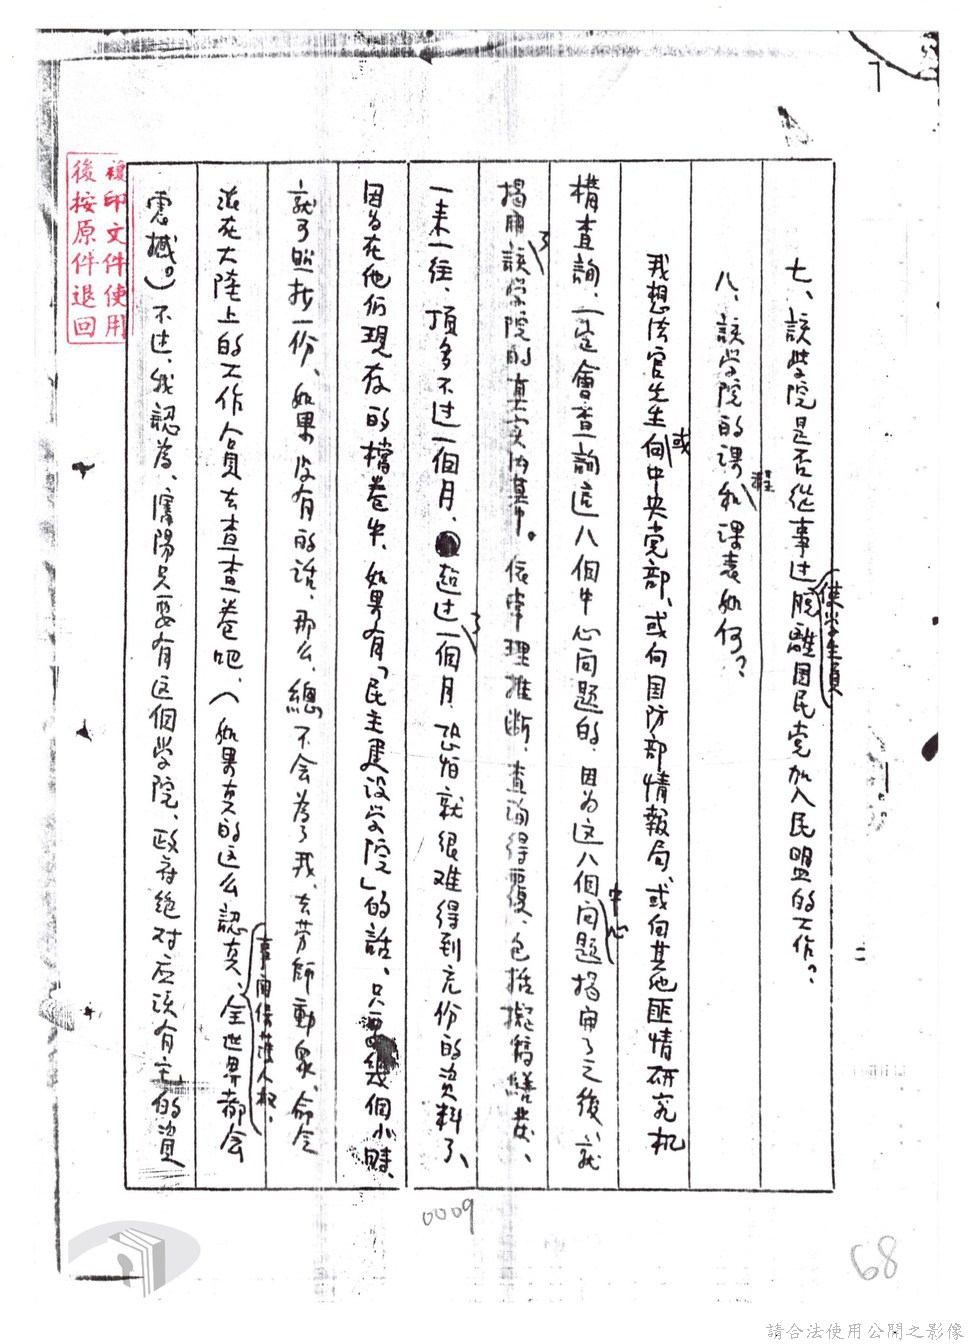 7
七、該学院是否從事过使学生員脫離国民党加入民盟的工作？
八、該学院的课程和课表如何？
我想法官先生或向中央党部、或向国防部情報局、或向其他匪情研究机
構查詢、一定會查詢这八個中心问题的、因为这八個中心问题揭開了之後、就
揭開了該学院的真实内幕。依常理推断、查詢得覆、包括擬稿繕发、
一来一往、頂多不过一個月、超过了一個月、恐怕就很难得到充份的资料了、
因为在他们现存的檔卷中、如果有「民主建设学院」的話、只要幾個小時、
就可照抄一份、如果没有的話、那么、總不会為了我、去劳師動眾、命令
派在大陸上的工作人員去查查卷吧、（如果真的这么認真、事関保護人权、全世界都会
震撼。）不过、我認為、瀋陽只要有这個学院、政府绝对应该有它的資
複印文件使用
後按原件退回
0009
68
請合法使用公開之影像